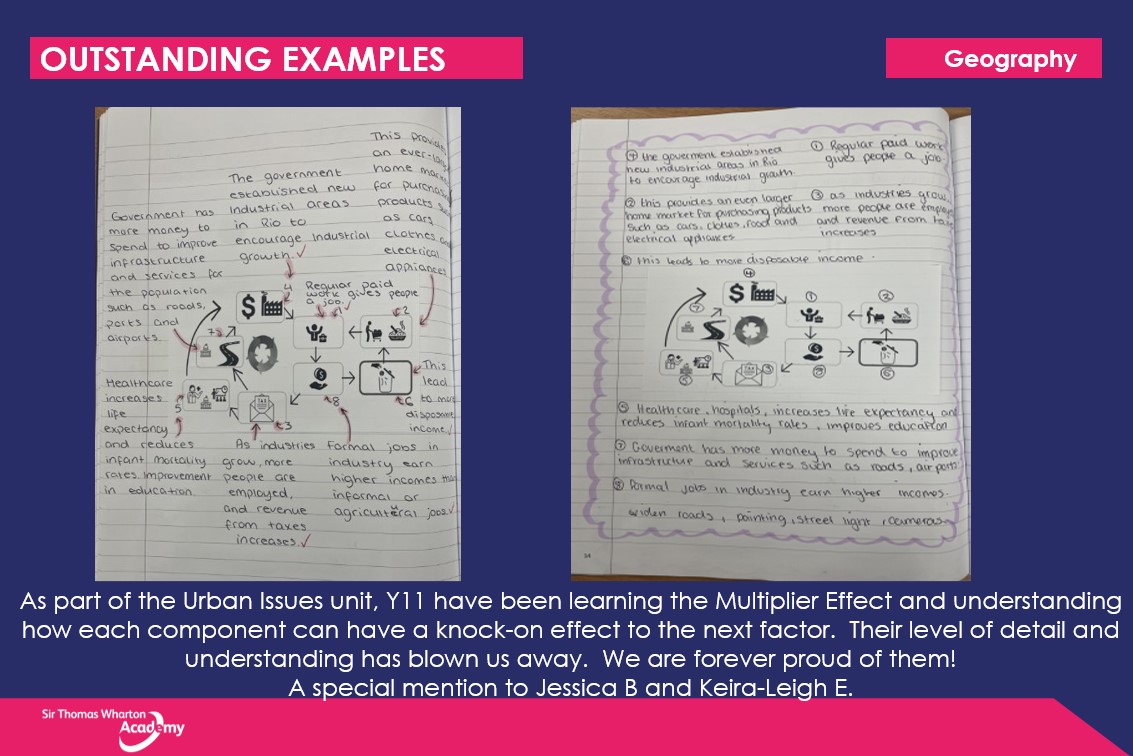 OUTSTANDING EXAMPLES
Geography
This
an ever-
home
for
products
as cars
clothes
electrical
appliances
The government
established new
industrial areas
in Rio to
encourage industrial
growth.
Government has
more money to
spend to improve
infrastructure
and services for
the population
such as roads,
ports and
airports.
Regular paid
work gives people
a job.
4
1
2
7
5
3
8
6
TAX
Healthcare
increases
life
expectancy
and reduces
infant mortality
rates. Improvement
in education
As industries
grow, more
people are
employed,
and revenue
from taxes
increases.
Formal jobs in
industry earn
higher incomes
informal or
agricultural jobs.
This
lead
to
income
④ the goverment established
new industrial areas in Rio
to encourage industrial growth
① Regular paid work
gives people a job.
② this provides an even larger
home market for purchasing products
such as cars, clothes, food and
electrical appliances
③ as industries grow,
more people are
and revenue from
increases
⑥ this leads to more disposable income.
④
①
②
⑦
⑤
TAX
③
⑧
⑥
⑤ Healthcare, hospitals, increases life expectancy and
reduces infant mortality rates, improves education
⑦ Goverment has more money to spend to improve
infrastructure and services such as roads, air ports
⑧ Formal jobs in industry earn higher incomes.
widen roads, painting, street light, cameras
As part of the Urban Issues unit, Y11 have been learning the Multiplier Effect and understanding
how each component can have a knock-on effect to the next factor. Their level of detail and
understanding has blown us away. We are forever proud of them!
A special mention to Jessica B and Keira-Leigh E.
Sir Thomas Wharton
Academy